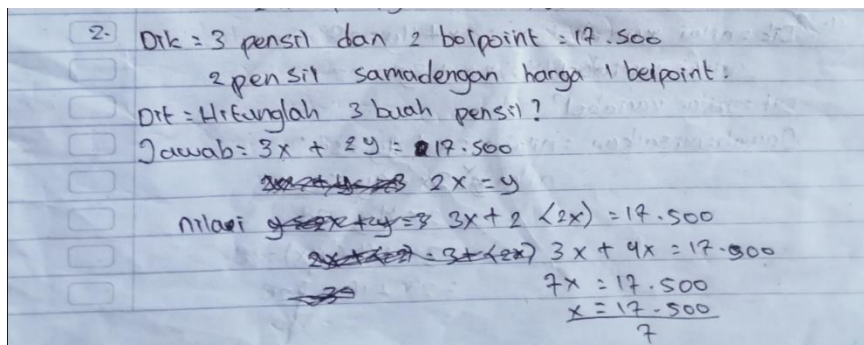 2. Dik = 3 pensil dan 2 bolpoint = 17.500
2 pensil samadengan harga 1 belpoint.
Dit = Hitunglah 3 buah pensil?
Jawab = 3x + 2y = 17.500
2x = y
nilai 3x + 2 (2x) = 17.500
3x + 4x = 17.500
7x = 17.500
x = 17.500
7